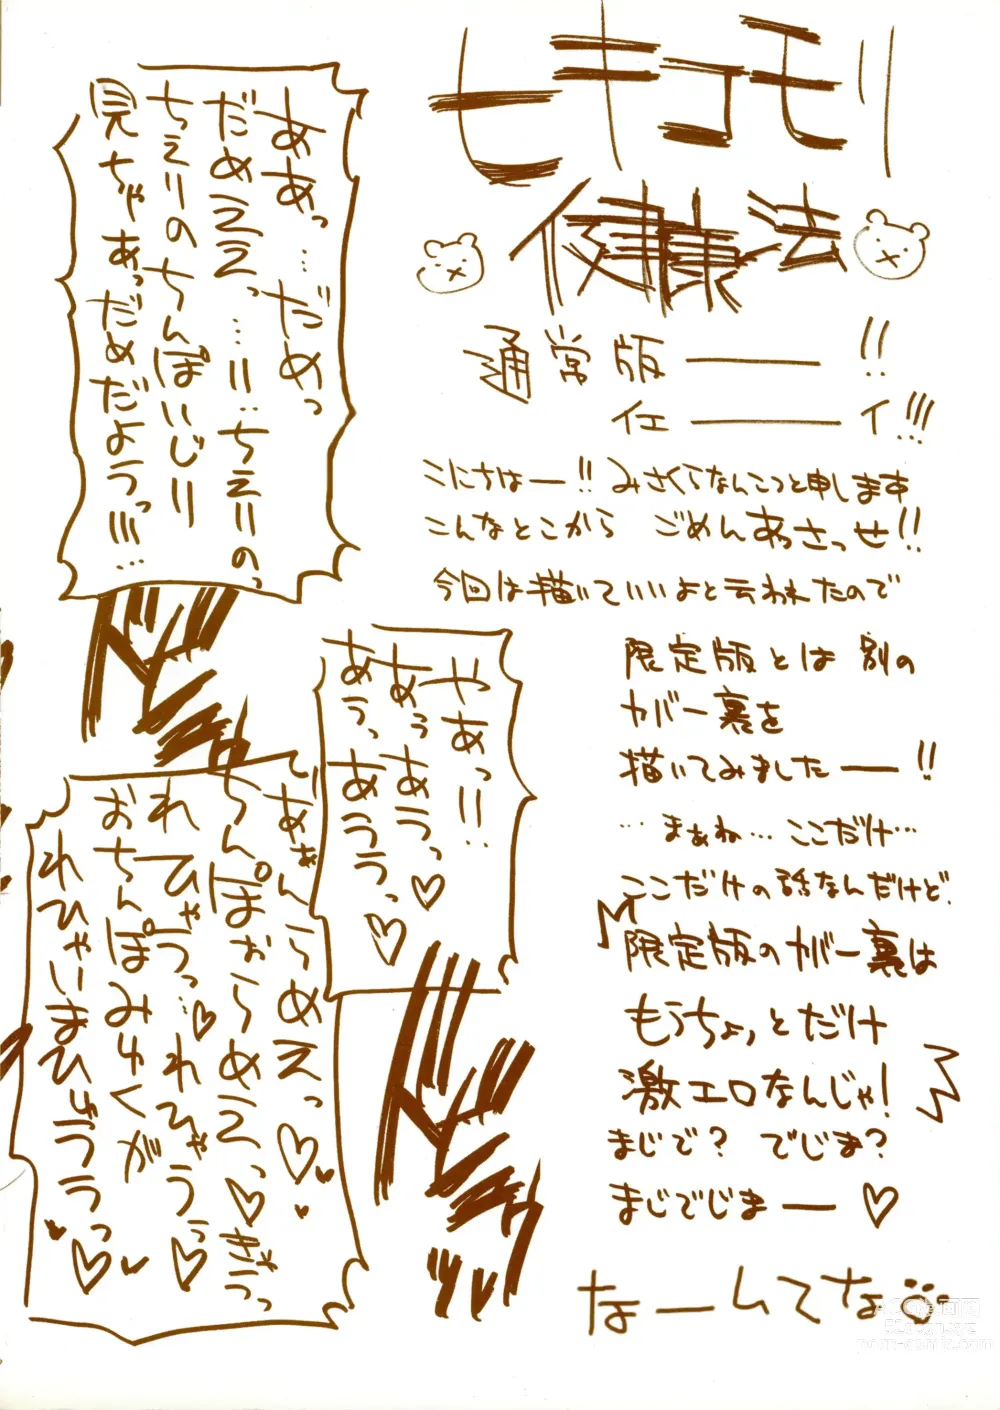 ヒキコモリ
健康法
通常版――!!
イエ――イ!!!
こにちはー!! みさくらなんこつと申します
こんなとこから ごめんあさっせ!!
今回は描いていいよと云われたので
限定版とは別の
カバー裏を
描いてみましたー!!
…まぁね…ここだけ…
ここだけの話なんだけど、
限定版のカバー裏は
もうちょっとだけ
激エロなんじゃ!
まじで? でじま?
まじでじまー♡
なーんてな
ああっ…だめっ
だめえええっ…!!…ちぇりのっ
ちぇりのちんぽいじり
見ちゃあっだめだようっ!!!…
ドピュ
やあっ!!
あぁうあうっ♡
あぅっあううっ♡
ドピュッ
あぁんらめえっ♡
ちんぽぉらめえっ♡きゃうっ
れひゃうっ…♡れひゃうぅ♡
おちんぽみゆくが
れひゃいまひゅううっ♡